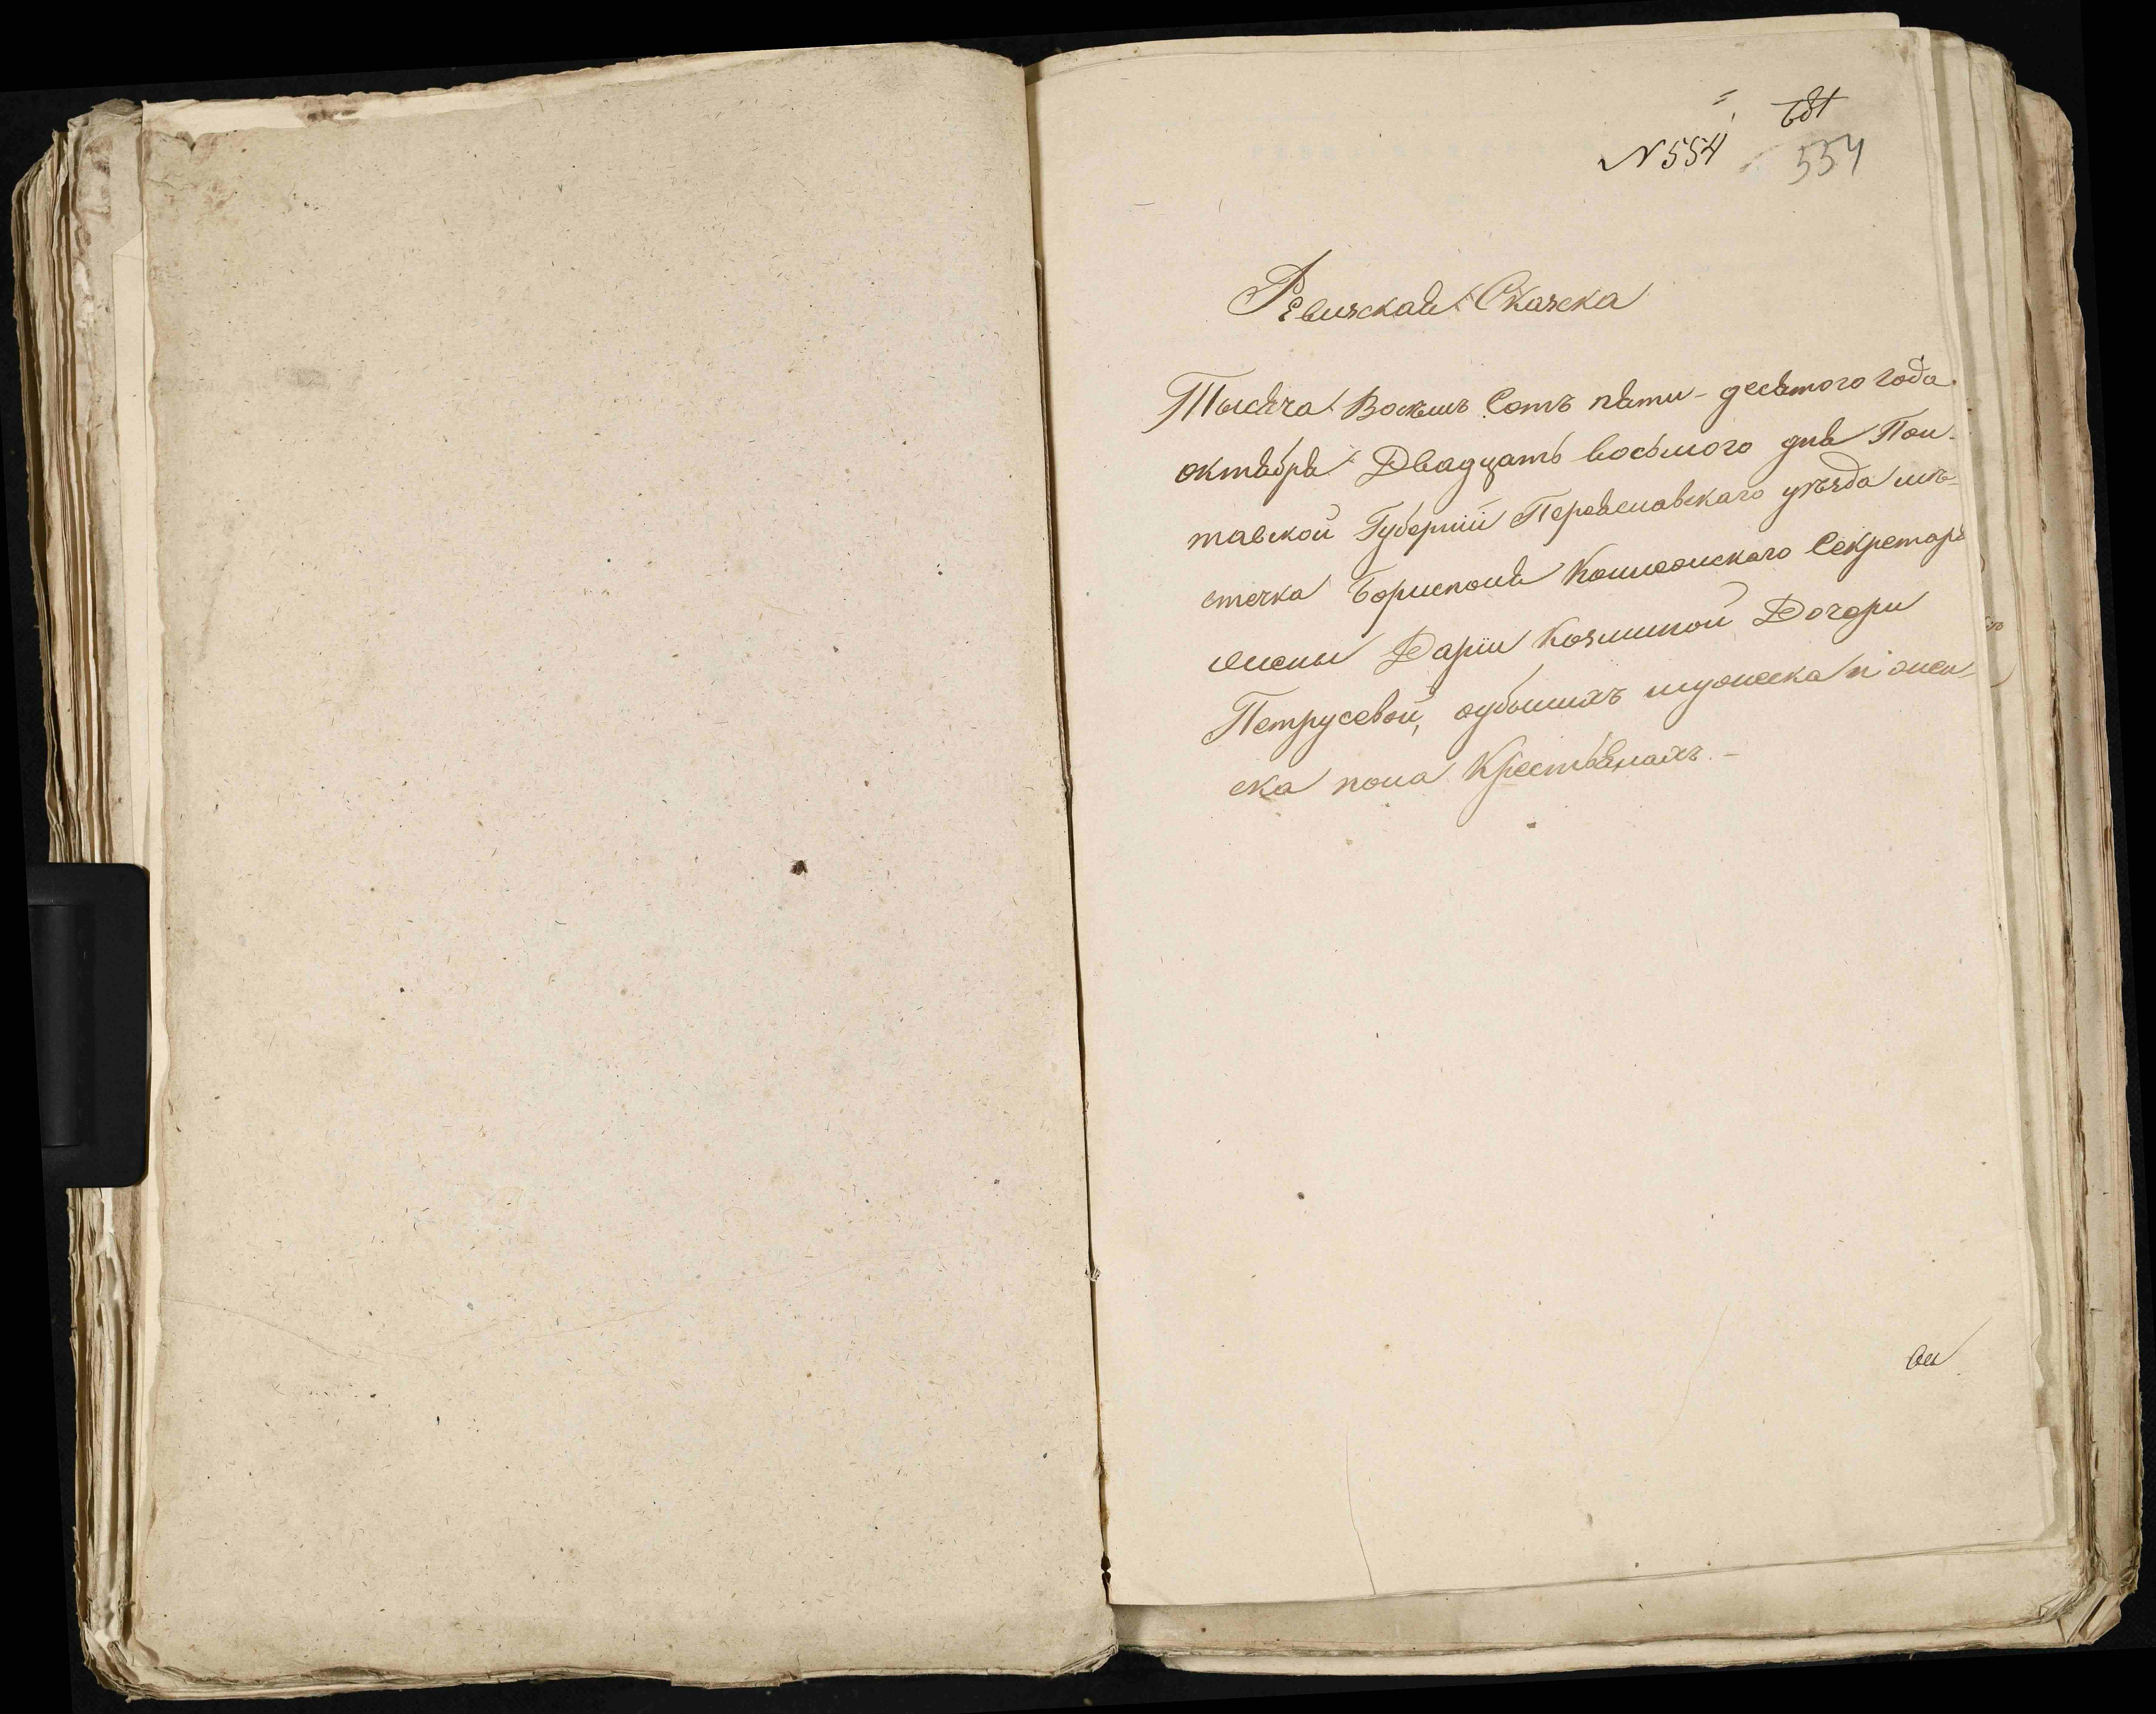 № 554
554
Ревизская Сказка
Тысяча Восемь Сотъ пяти-десятого года
октября Двадцать восьмого дня Пол-
тавской Губерніи Переяславскаго уѣзда мѣ-
стечка Борисполя Коллежскаго Секретаря
жены Даріи Козминой Дочери
Петрусевой, о убылихъ мужеска и жен-
ска пола Крестьянахъ.-